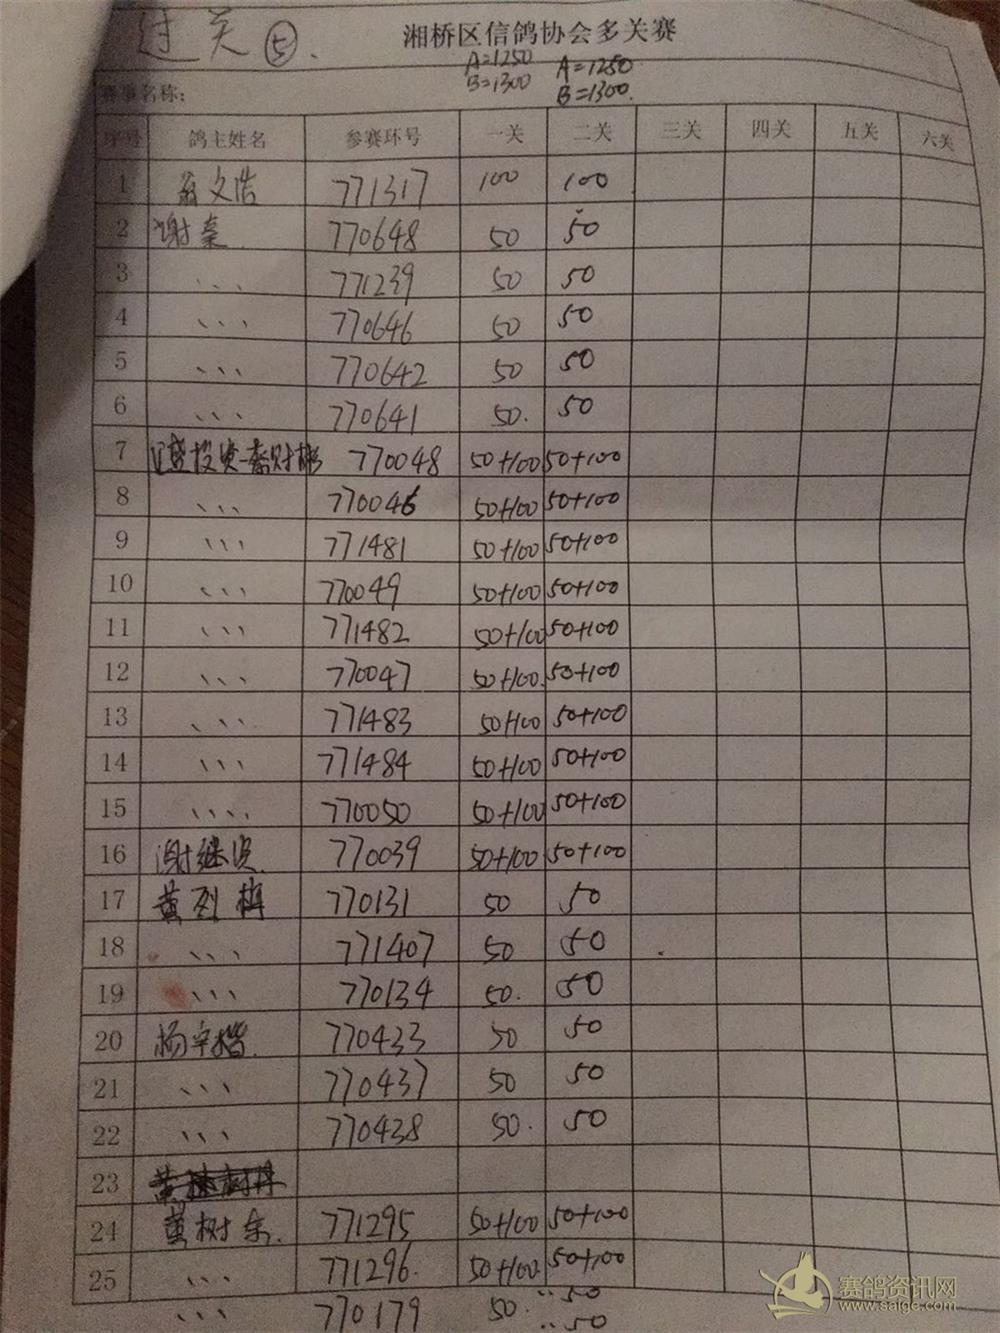 过关⑤.
湘桥区信鸽协会多关赛
A=1250 A=1250
B=1300 B=1300.
赛事名称:
序号 鸽主姓名 参赛环号 一关 二关 三关 四关 五关 六关
1 翁文浩 771317 100 100
2 谢 770648 50 50
3 、、、 771239 50 50
4 、、、 770646 50 50
5 、、、 770642 50 50
6 、、、 770641 50. 50
7 投资 财 770048 50+100 50+100
8 、、、 770046 50+100 50+100
9 、、、 771481 50+100 50+100
10 、、、 770049 50+100 50+100
11 、、、 771482 50+100 50+100
12 、、、 770047 50+100 50+100
13 、、、 771483 50+100 50+100
14 、、、 771484 50+100 50+100
15 、、、、 770050 50+100 50+100
16 谢继 770039 50+100 50+100
17 黄列 770131 50 50
18 、、、 771407 50 50
19 、、、 770134 50. 50
20 杨宇 770433 50 50
21 、、、 770437 50 50
22 、、、 770438 50. 50
23
24 黄树 771295 50+100 50+100
25 、、、 771296. 50+100 50+100
、、、 770179 50. 50
50
赛鸽资讯网
www.saige.com